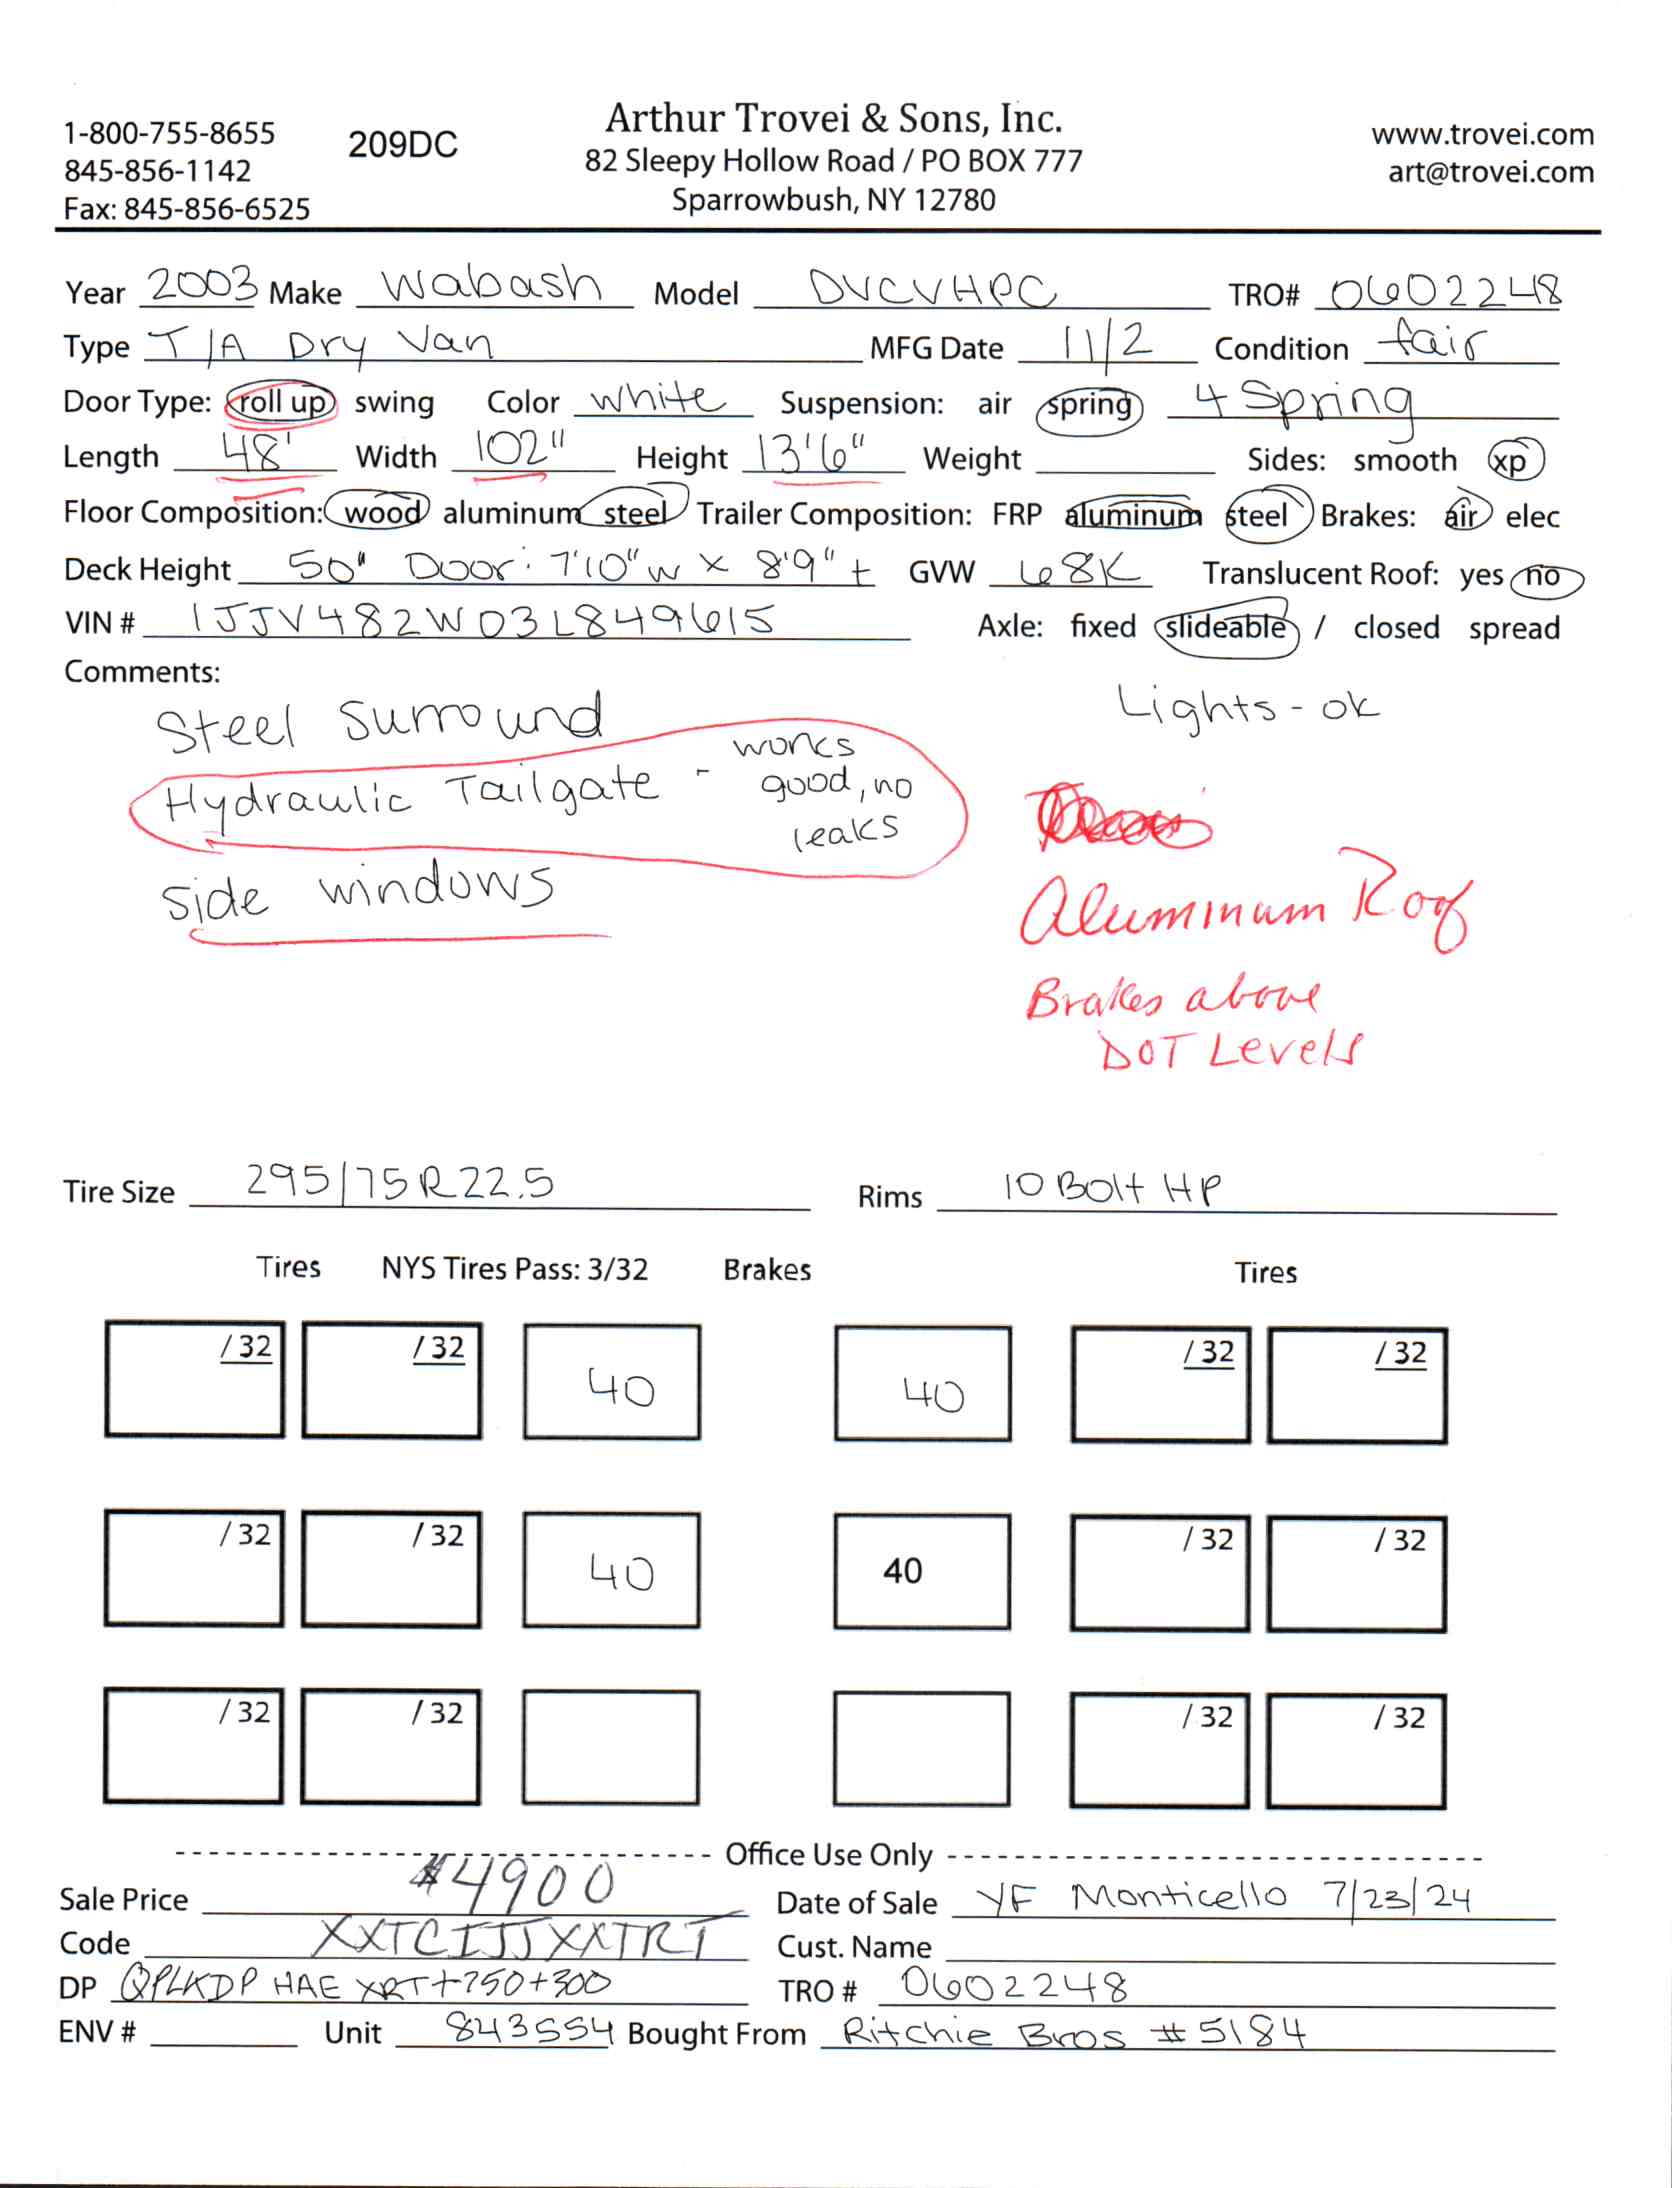 1-800-755-8655
845-856-1142
Fax: 845-856-6525
209DC
Arthur Trovei & Sons, Inc.
82 Sleepy Hollow Road / PO BOX 777
Sparrowbush, NY 12780
www.trovei.com
art@trovei.com
Year 2003 Make Wabash Model DVCVHPC TRO# 0602248
Type T/A Dry Van MFG Date 11/2 Condition fair
Door Type: roll up swing Color white Suspension: air spring 4 Spring
Length 48' Width 102" Height 13'6" Weight Sides: smooth xp
Floor Composition: wood aluminum steel Trailer Composition: FRP aluminum steel Brakes: air elec
Deck Height 50" Door: 7'10"w x 8'9"t GVW 68K Translucent Roof: yes no
VIN # 1JJV482W03L849615 Axle: fixed slideable / closed spread
Comments:
Steel Surround
Lights - ok
Hydraulic Tailgate - works good, no leaks
side windows
Aluminum Roof
Brakes above
DOT Levels
Tire Size 295/75R22.5 Rims 10 Bolt HP
Tires NYS Tires Pass: 3/32 Brakes Tires
/32 /32 40 40 /32 /32
/32 /32 40 40 /32 /32
/32 /32 /32 /32
Office Use Only
Sale Price $4900 Date of Sale YF Monticello 7/23/24
Code XXTCIJJXXTRT Cust. Name
DP QPLKDP HAE XRT+750+300 TRO # 0602248
ENV # Unit 843554 Bought From Ritchie Bros #5184